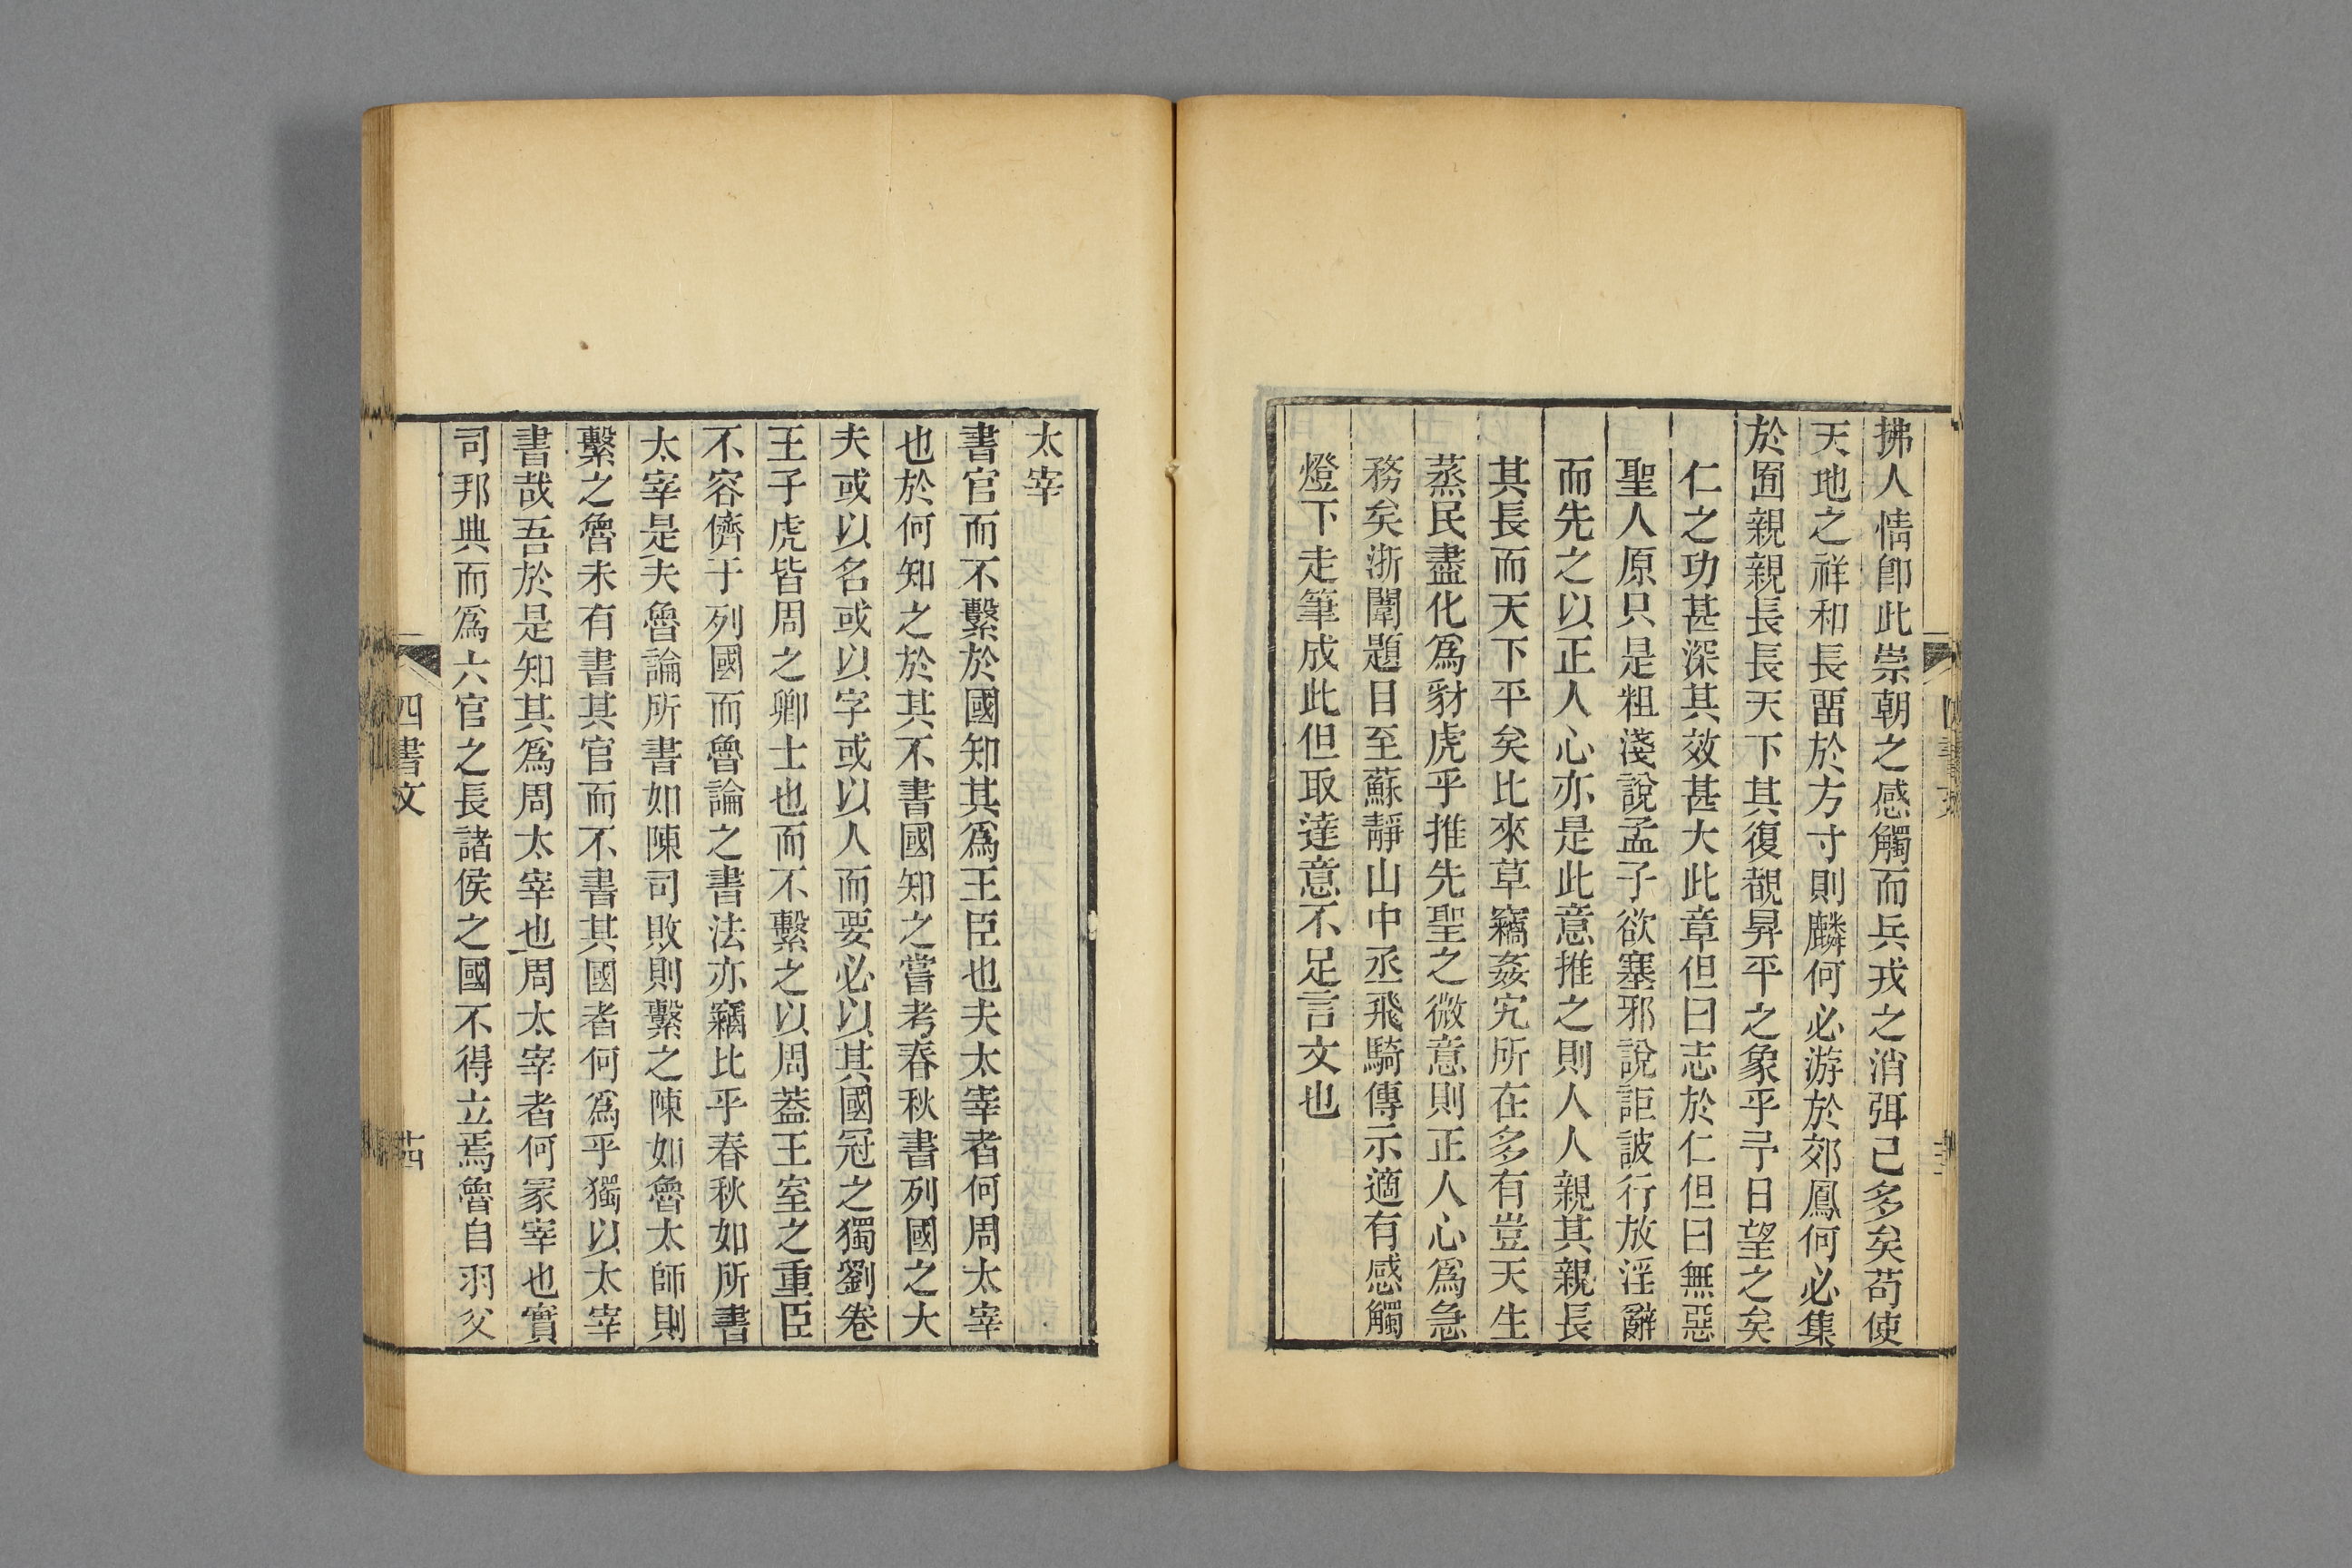 拂人情卽此崇朝之感觸而兵戎之消弭已多矣苟使
天地之祥和長畱於方寸則麟何必游於郊鳳何必集
於囿親親長長天下其復覩昇平之象乎予日望之矣
仁之功甚深其效甚大此章但曰志於仁但曰無惡
聖人原只是粗淺說孟子欲塞邪說詎詖行放淫辭
而先之以正人心亦是此意推之則人人親其親長
其長而天下平矣比來草竊姦宄所在多有豈天生
蒸民盡化爲豺虎乎推先聖之微意則正人心爲急
務矣浙闈題目至蘇靜山中丞飛騎傳示適有感觸
燈下走筆成此但取達意不足言文也
太宰
書官而不繫於國知其爲王臣也夫太宰者何周太宰
也於何知之於其不書國知之嘗考春秋書列國之大
夫或以名或以字或以人而要必以其國冠之獨劉卷
王子虎皆周之卿士也而不繫之以周葢王室之重臣
不容儕于列國而魯論之書法亦竊比乎春秋如所書
太宰是夫魯論所書如陳司敗則繫之陳如魯太師則
繫之魯未有書其官而不書其國者何爲乎獨以太宰
書哉吾於是知其爲周太宰也周太宰者何冢宰也實
司邦典而爲六官之長諸侯之國不得立焉魯自羽父
四書文